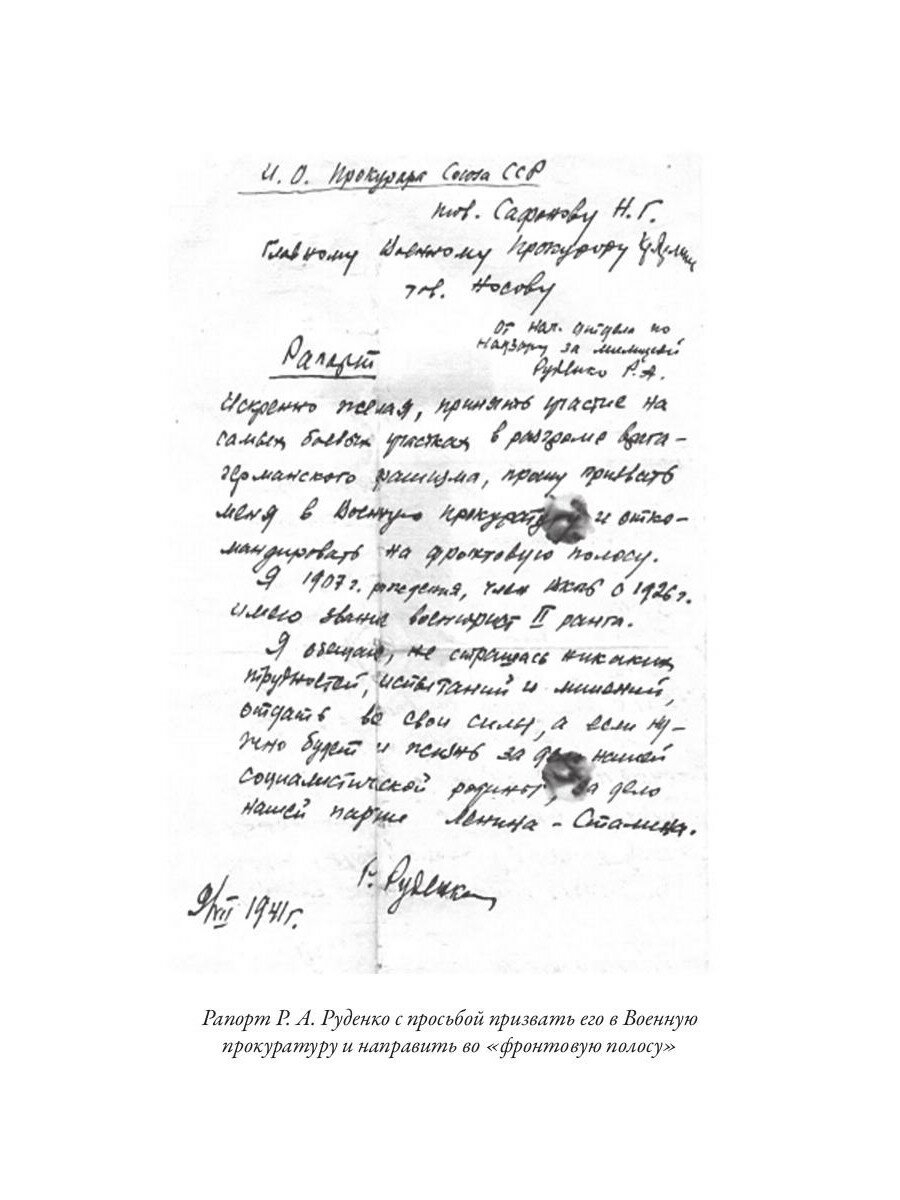 И. О. Прокурора Союза ССР
тов. Сафонову Н. Г.
Главному Военному Прокурору
тов. Носову
От нач. отдела по
надзору за милицией
Руденко Р. А.
Рапорт
Искренно желая, принять участие на
самых боевых участках в разгроме врага –
германского фашизма, прошу призвать
меня в Военную прокуратуру и отко-
мандировать на фронтовую полосу.
Я 1907 г. рождения, член ВКПб с 1926 г.
имею звание военюрист II ранга.
Я обещаю, не страшась никаких
трудностей, испытаний и лишений,
отдать все свои силы, а если ну-
жно будет и жизнь за дело нашей
социалистической родины, за дело
нашей партии Ленина – Сталина.
Р. Руденко
9/VII 1941 г.
Рапорт Р. А. Руденко с просьбой призвать его в Военную
прокуратуру и направить во «фронтовую полосу»